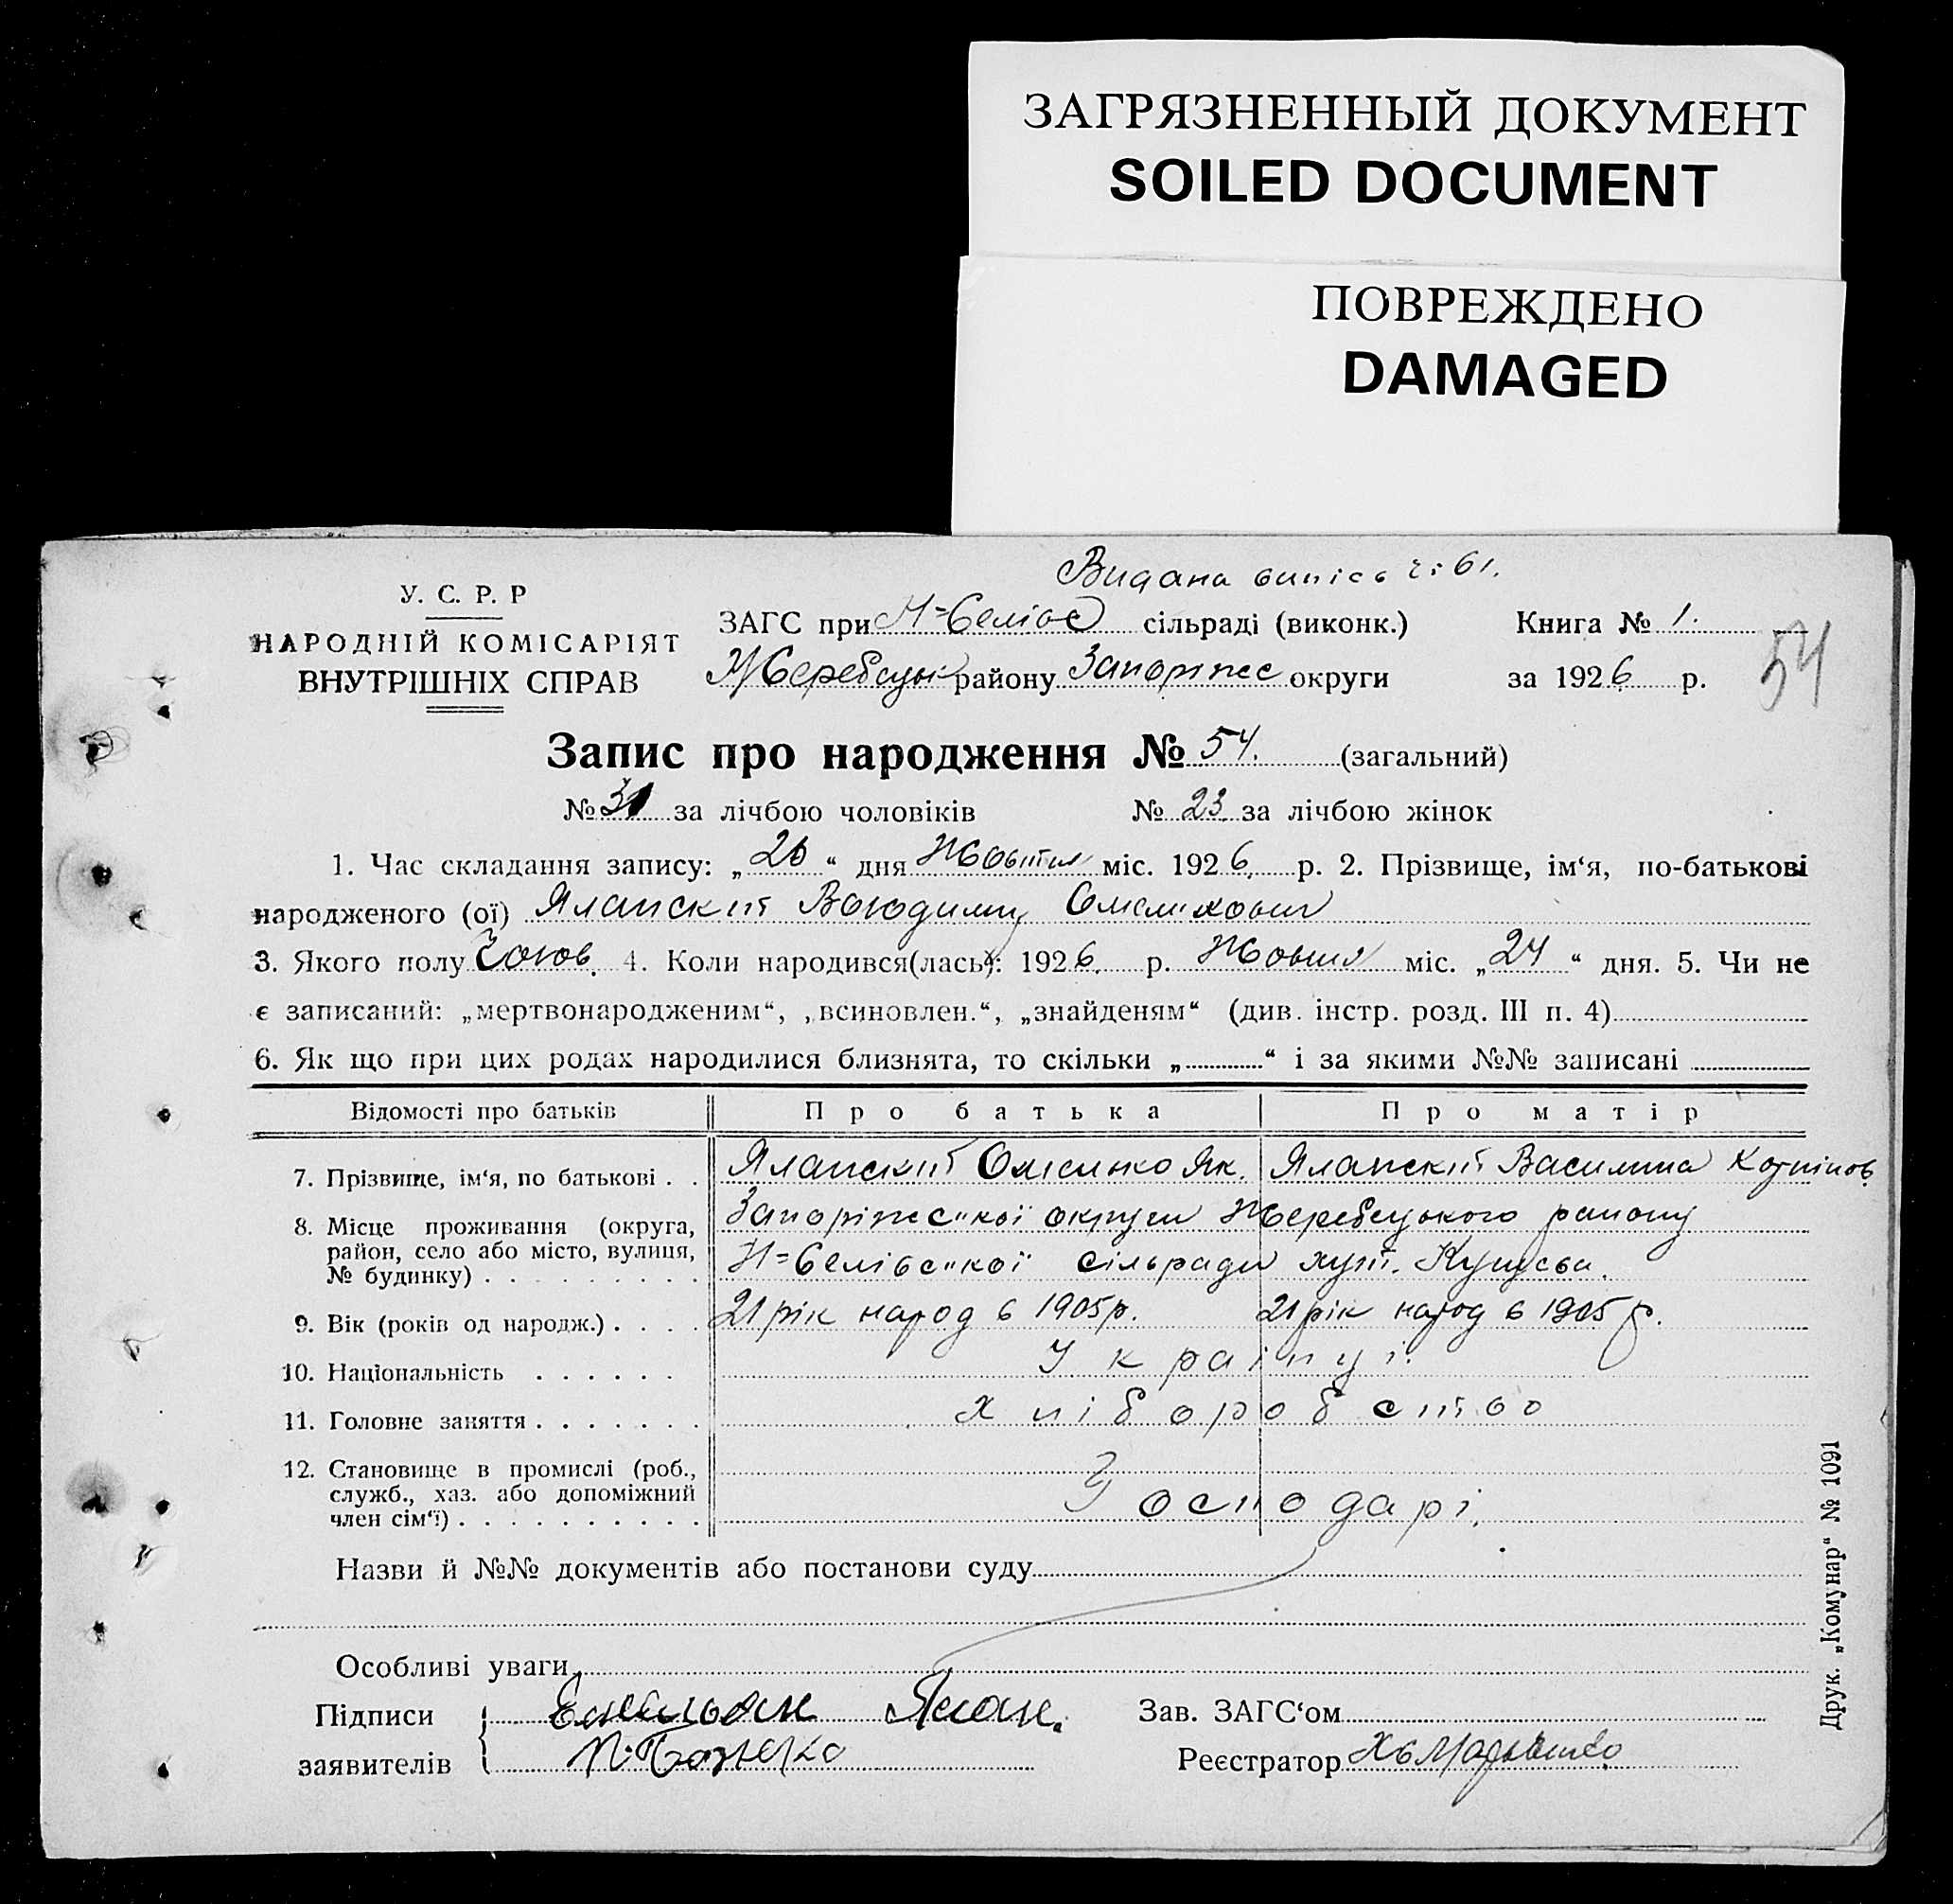 ЗАГРЯЗНЕННЫЙ ДОКУМЕНТ
SOILED DOCUMENT
ПОВРЕЖДЕНО
DAMAGED
Видана випісь
У. С. Р. Р
НАРОДНІЙ КОМІСАРІЯТ
ВНУТРІШНІХ СПРАВ
ЗАГС при сільраді (виконк.) Книга № 1.
Жеребецьк району Запоріжс округи за 1926 р.
54
Запис про народження № 54. (загальний)
№ 31 за лічбою чоловіків № 23 за лічбою жінок
1. Час складання запису: „ “ дня Жовтня міс. 1926 р. 2. Прізвище, ім‘я, по-батькові
народженого (ої) Яланский Володимир Омельхович
3. Якого полу Чолов. 4. Коли народився(лась): 1926 р. Жовтня міс. „24“ дня. 5. Чи не
є записаний: „мертвонародженим“, „всиновлен.“, „знайденям“ (див. інстр. розд. III п. 4)
6. Як що при цих родах народилися близнята, то скільки „ “ і за якими №№ записані
Відомості про батьків Про батька Про матір
7. Прізвище, ім‘я, по батькові Яланский Омелько Як. Яланский Василина
8. Місце проживання (округа, район, село або місто, вулиця, № будинку) Запоріжс"кої округи Жеребецького району
сільради хут.
9. Вік (років од народж.) 21 рік народ в 1905 р. 21 рік народ в 1905 р.
10. Національність Українці.
11. Головне заняття хліборобство
12. Становище в промислі (роб., служб., хаз. або допоміжний член сім‘ї) Господарі.
Назви й №№ документів або постанови суду
Особливі уваги
Підписи Емельян Ялан. Зав. ЗАГС‘ом
заявителів Реєстратор
Друк. „Комунар“ № 1091